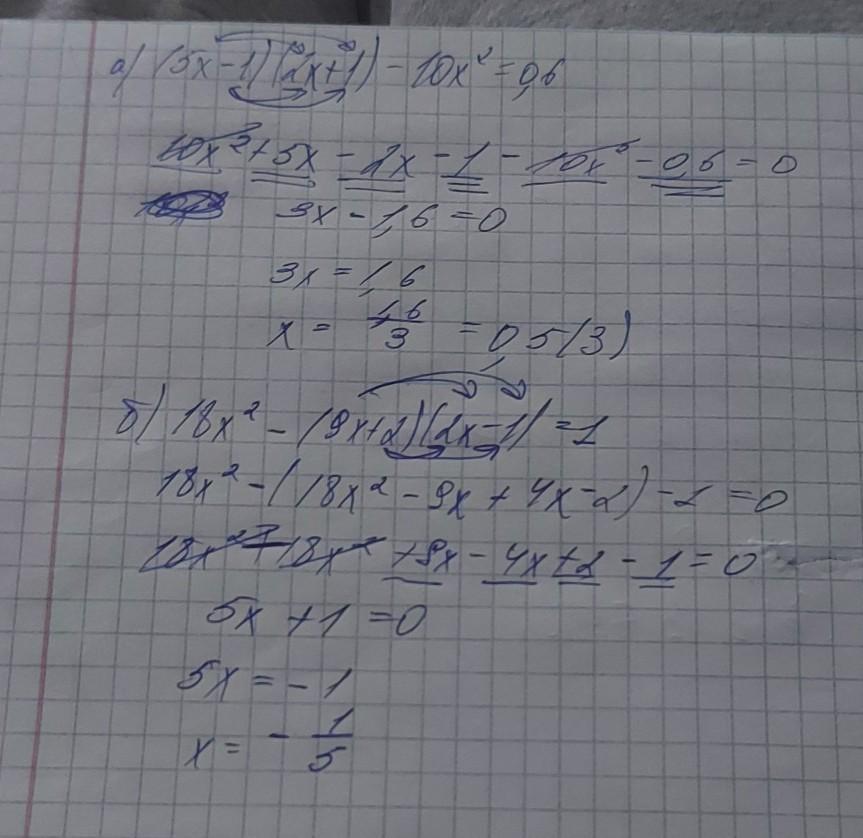 а) (5x-1)(2x+1) - 10x² = 0,6
10x² + 5x - 2x - 1 - 10x² - 0,6 = 0
3x - 1,6 = 0
3x = 1,6
x = 1,6/3 = 0,5(3)
б) 18x² - (9x+2)(2x-1) = 1
18x² - (18x² - 9x + 4x - 2) - 1 = 0
18x² - 18x² + 9x - 4x + 2 - 1 = 0
5x + 1 = 0
5x = - 1
x = - 1/5